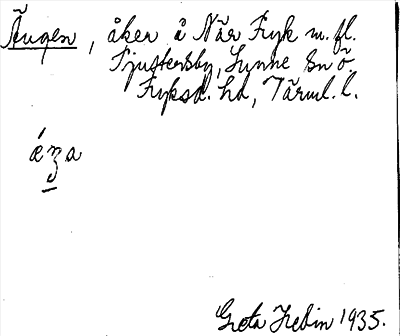 Äugen, åker å När Fryk m. fl.
Tjustersby, Sunne sn ö.
Fryksd. hd, Värml. l.
Greta Hedin 1935.